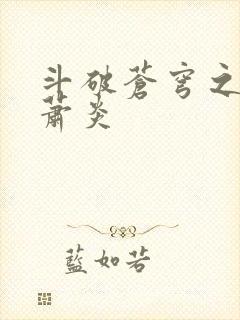 斗破蒼穹之
蕭炎
藍如若